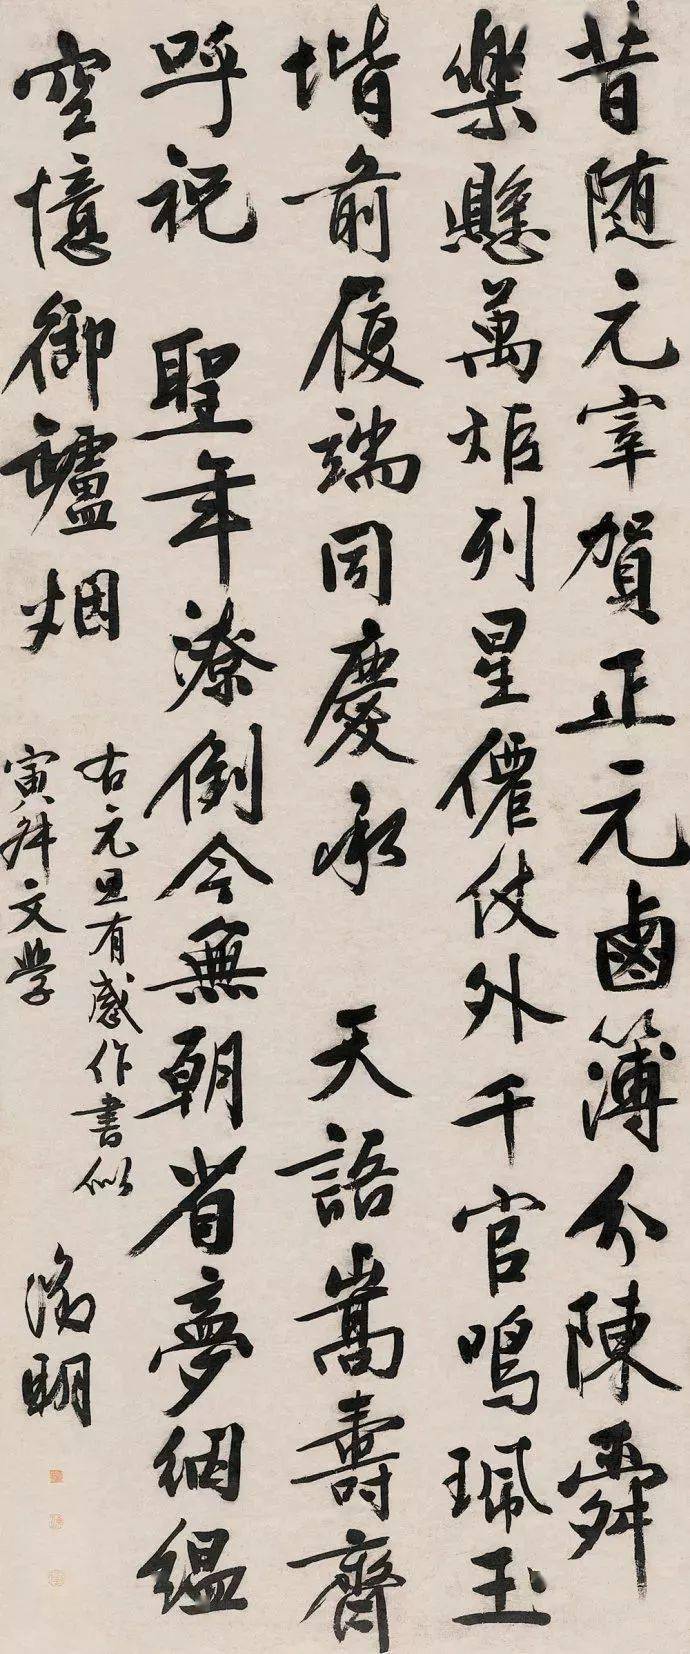 昔随元宰賀正元鹵簿分陳舜
樂懸萬炬列星僊仗外千官鳴珮玉
堦前履端同慶承 天語嵩壽齊
呼祝 聖年潦倒今無朝省夢絪緼
空憶御罏烟
右元旦有感作書似
寅升文學
徵明